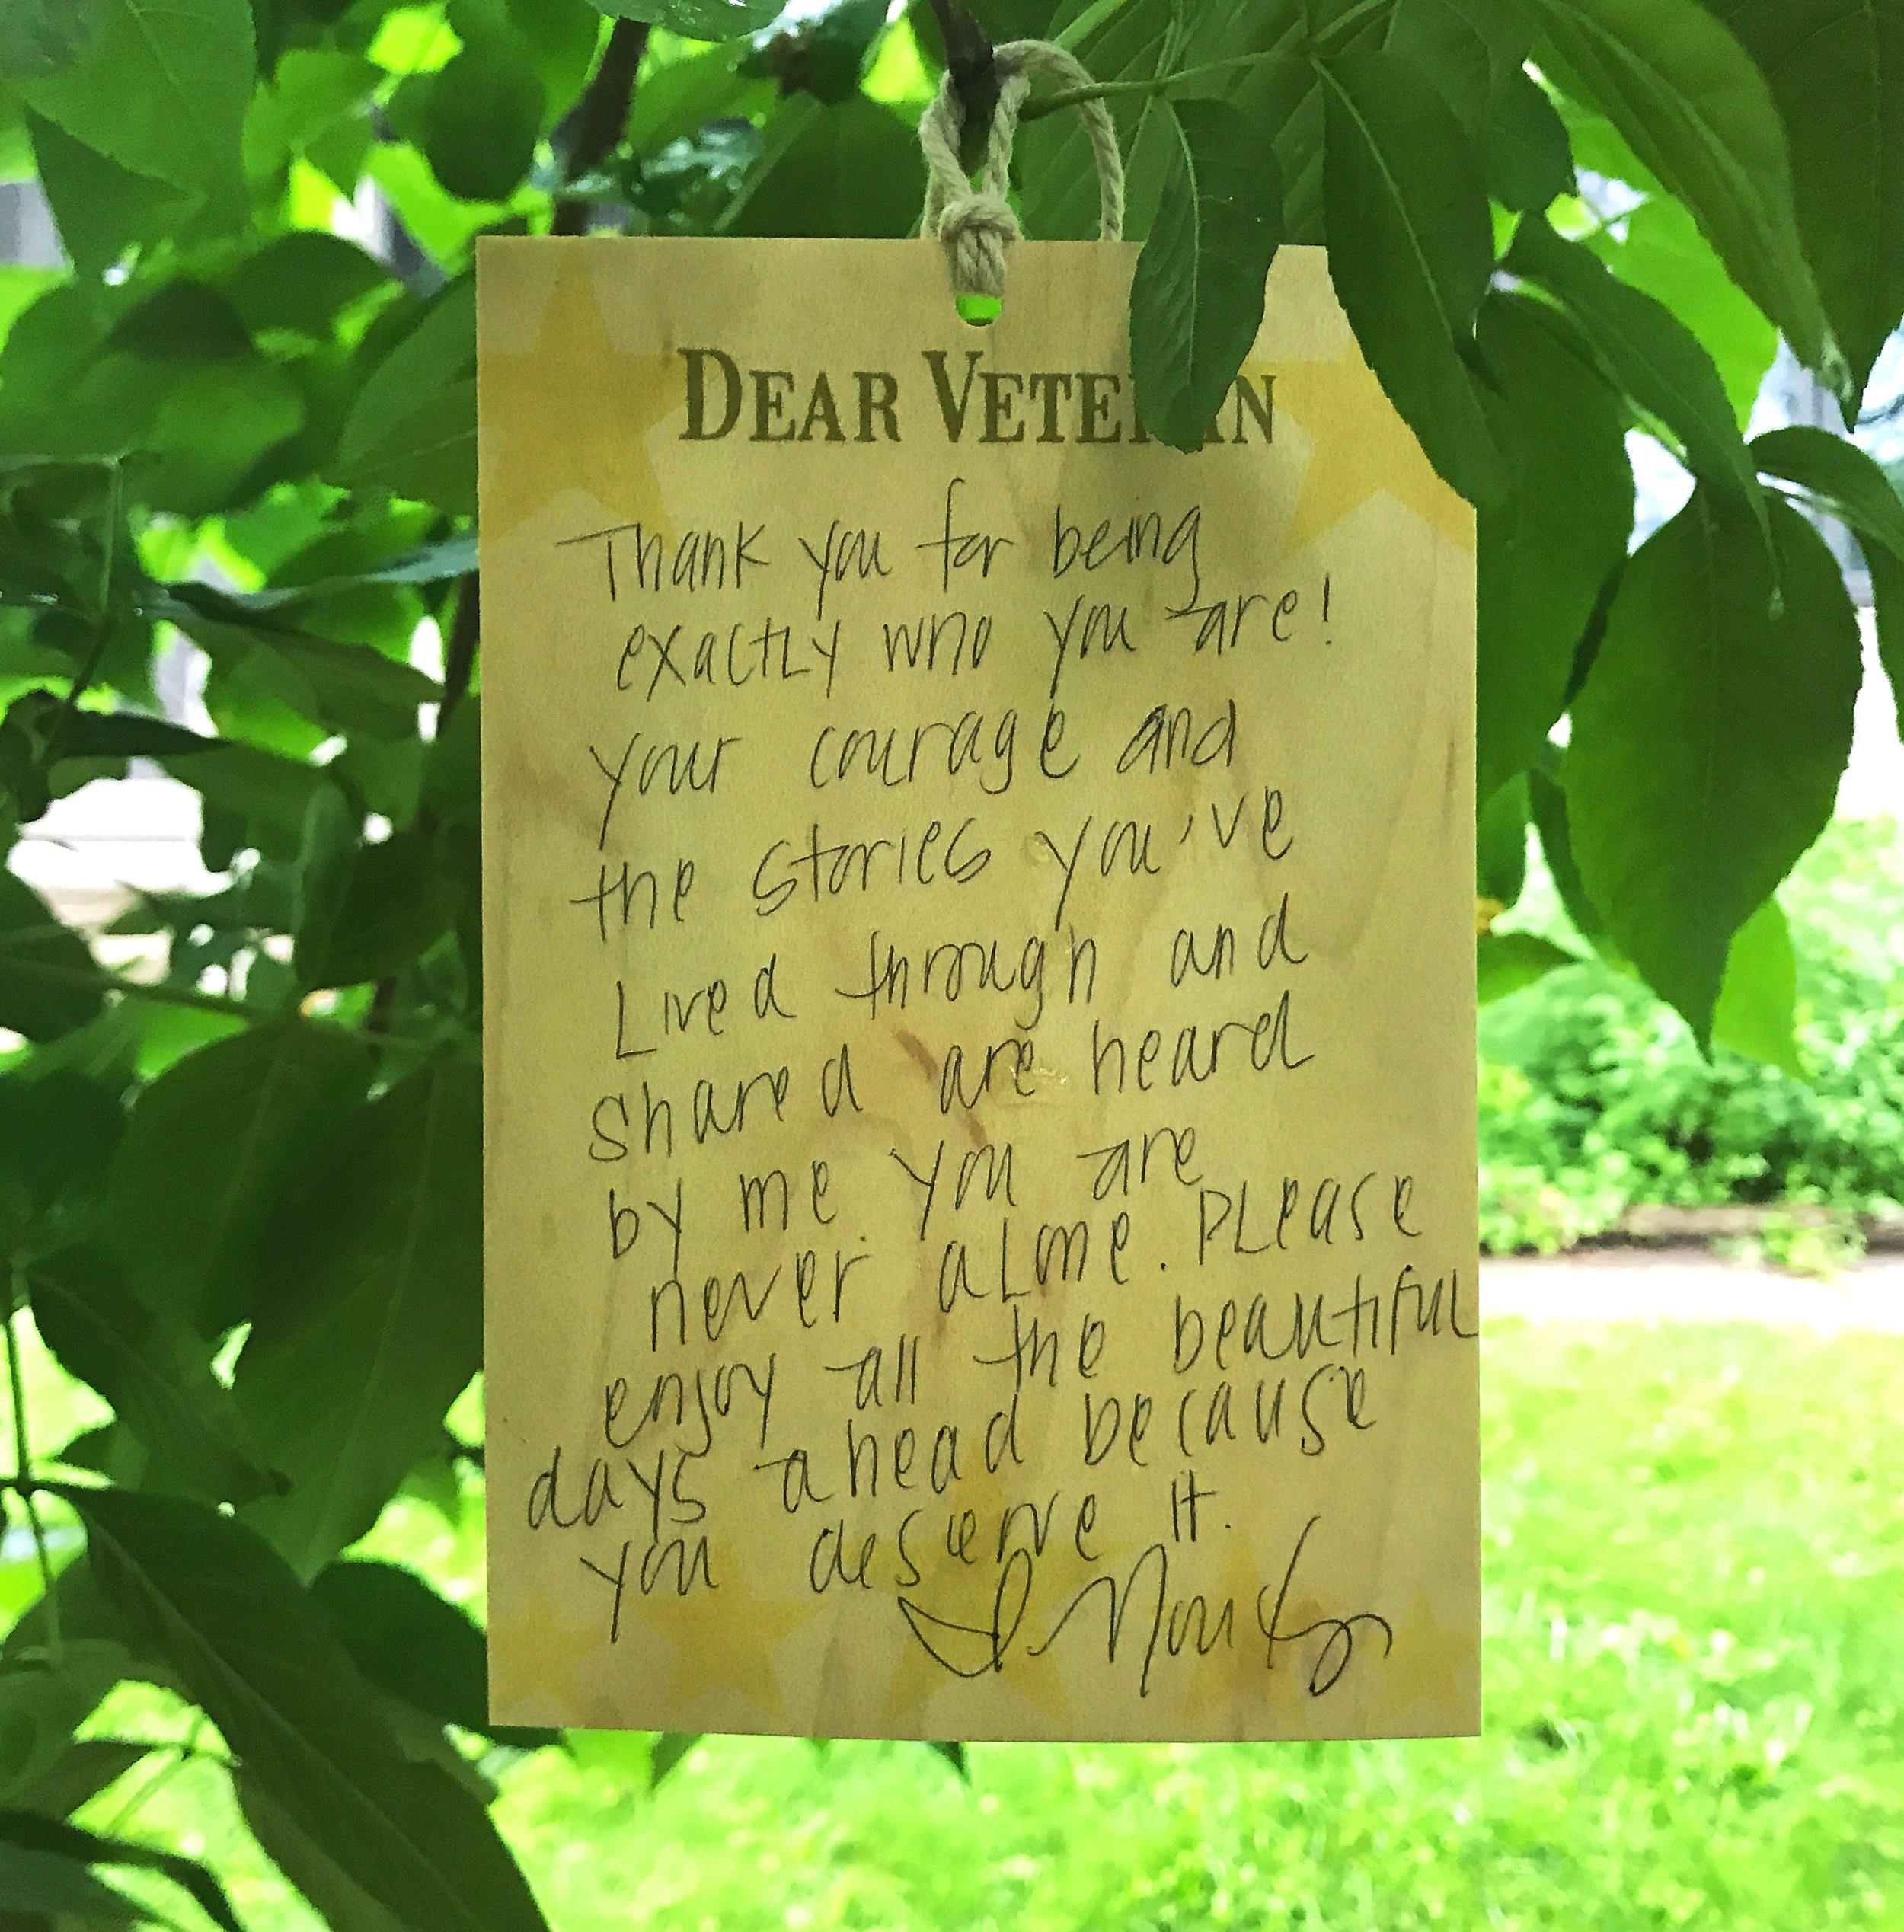 DEAR VETERAN
Thank you for being
exactly who you are!
your courage and
the stories you've
Lived through and
shared are heard
by me. you are
never alone. Please
enjoy all the beautiful
days ahead because
you deserve it.